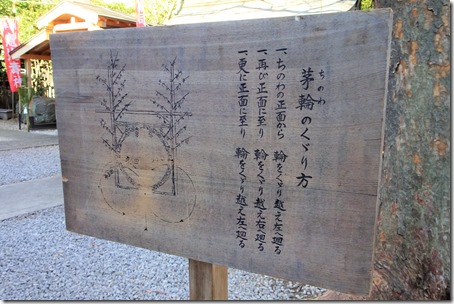 茅輪のくゞり方
ちのわ
一、ちのわの正面から 輪をくゞり越え左へ廻る
一、再び正面に至り 輪をくゞり越え右へ廻る
一、更に正面に至り 輪をくゞり越え左へ廻る